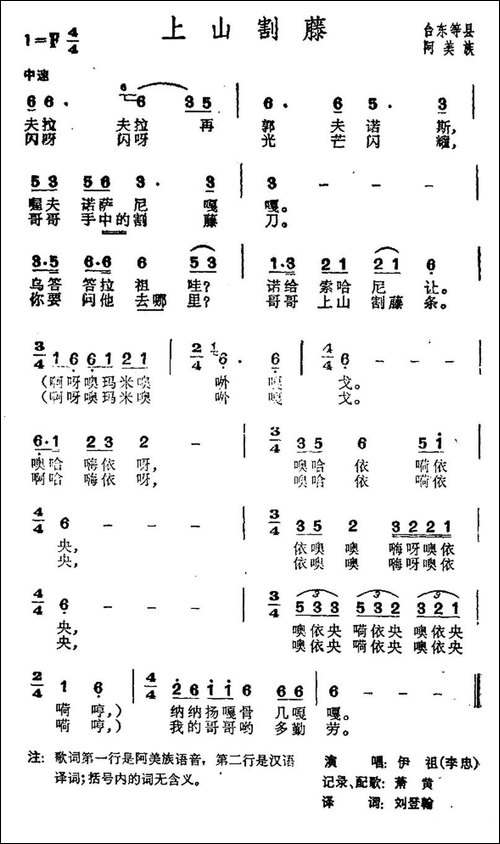 上山割藤
1=F 4/4
台东等县
阿美族
中速
6 6 · 6 3 5 | 6 · 6 5 · 3 |
夫拉 夫拉 再 郭 夫诺 斯,
闪呀 闪呀 光 芒闪 耀,
5 3 5 6 3 · 3 | 3 - - - |
喔夫 诺萨 尼 嘎 嘎。
哥哥 手中的割 藤 刀。
3·5 6·6 6 5 3 | 1·3 2 1 2 1 6 |
乌答 答拉 祖 哇? 诺给 索哈 尼 让。
你要 问他 去哪 里? 哥哥 上山 割藤 条。
3/4 1 6 6 1 2 1 | 2/4 6 · 6 · | 4/4 6 - - - |
(啊呀噢玛米噢 呐 嘎 戈。
(啊呀噢玛米噢 呐 嘎 戈。
6·1 2 3 2 - | 3/4 3 5 6 5 1 |
噢哈 嗨依 呀, 噢哈 依 嗬依
啊哈 嗨依 呀, 噢哈 依 嗬依
4/4 6 - - - | 3/4 3 5 2 3 2 2 1 |
央, 依噢 噢 嗨呀噢依
央, 依噢 噢 嗨呀噢依
4/4 6 - - - | 3/4 5 3 3 5 3 3 3 2 1 |
央, 噢依央 嗬依央 噢依央
央, 噢依央 嗬依央 噢依央
2/4 1 6 | 4/4 2 6 1 1 6 6 6 6 |
嗬 哼,) 纳纳扬嘎骨 几嘎 嘎。
嗬 哼,) 我的哥哥哟 多勤 劳。
注: 歌词第一行是阿美族语音,第二行是汉语
译词;括号内的词无含义。
演 唱:伊 祖(李忠)
记录、配歌:萧 黄
译 词:刘登翰